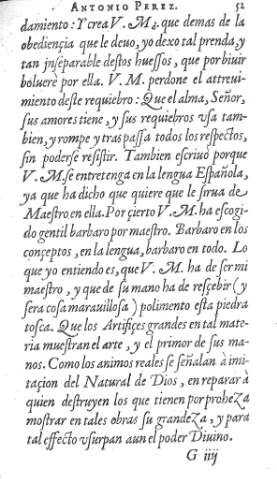 ANTONIO PEREZ. 52
damiento: Y crea V. M. que demas de la
obediençia que le deuo, yo dexo tal prenda, y
tan inseparable destos huessos, que por biuir
boluere por ella. V. M. perdone el attreui-
miento deste requiebro: Que el alma, Señor,
sus amores tiene, y sus requiebros vsa tam-
bien, y rompe y traspassa todos los respectos,
sin poderse resistir. Tambien escriuo porque
V. M. se entretenga en la lengua Española,
ya que ha dicho que quiere que le sirua de
Maestro en ella. Por çierto V. M. ha escogi-
do gentil barbaro por maestro. Barbaro en los
conçeptos, en la lengua, barbaro en todo. Lo
que yo entiendo es, que V. M. ha de ser mi
maestro, y que de su mano ha de resçebir (y
sera cosa marauillosa) polimento esta piedra
tosca. Que los Artifiçes grandes en tal mate-
ria muestran el arte, y el primor de sus ma-
nos. Como los animos reales se señalan à imi-
taçion del Natural de Dios, en reparar à
quien destruyen los que tienen por proheza
mostrar en tales obras su grandeza, y para
tal effecto vsurpan aun el poder Diuino.
G iiij